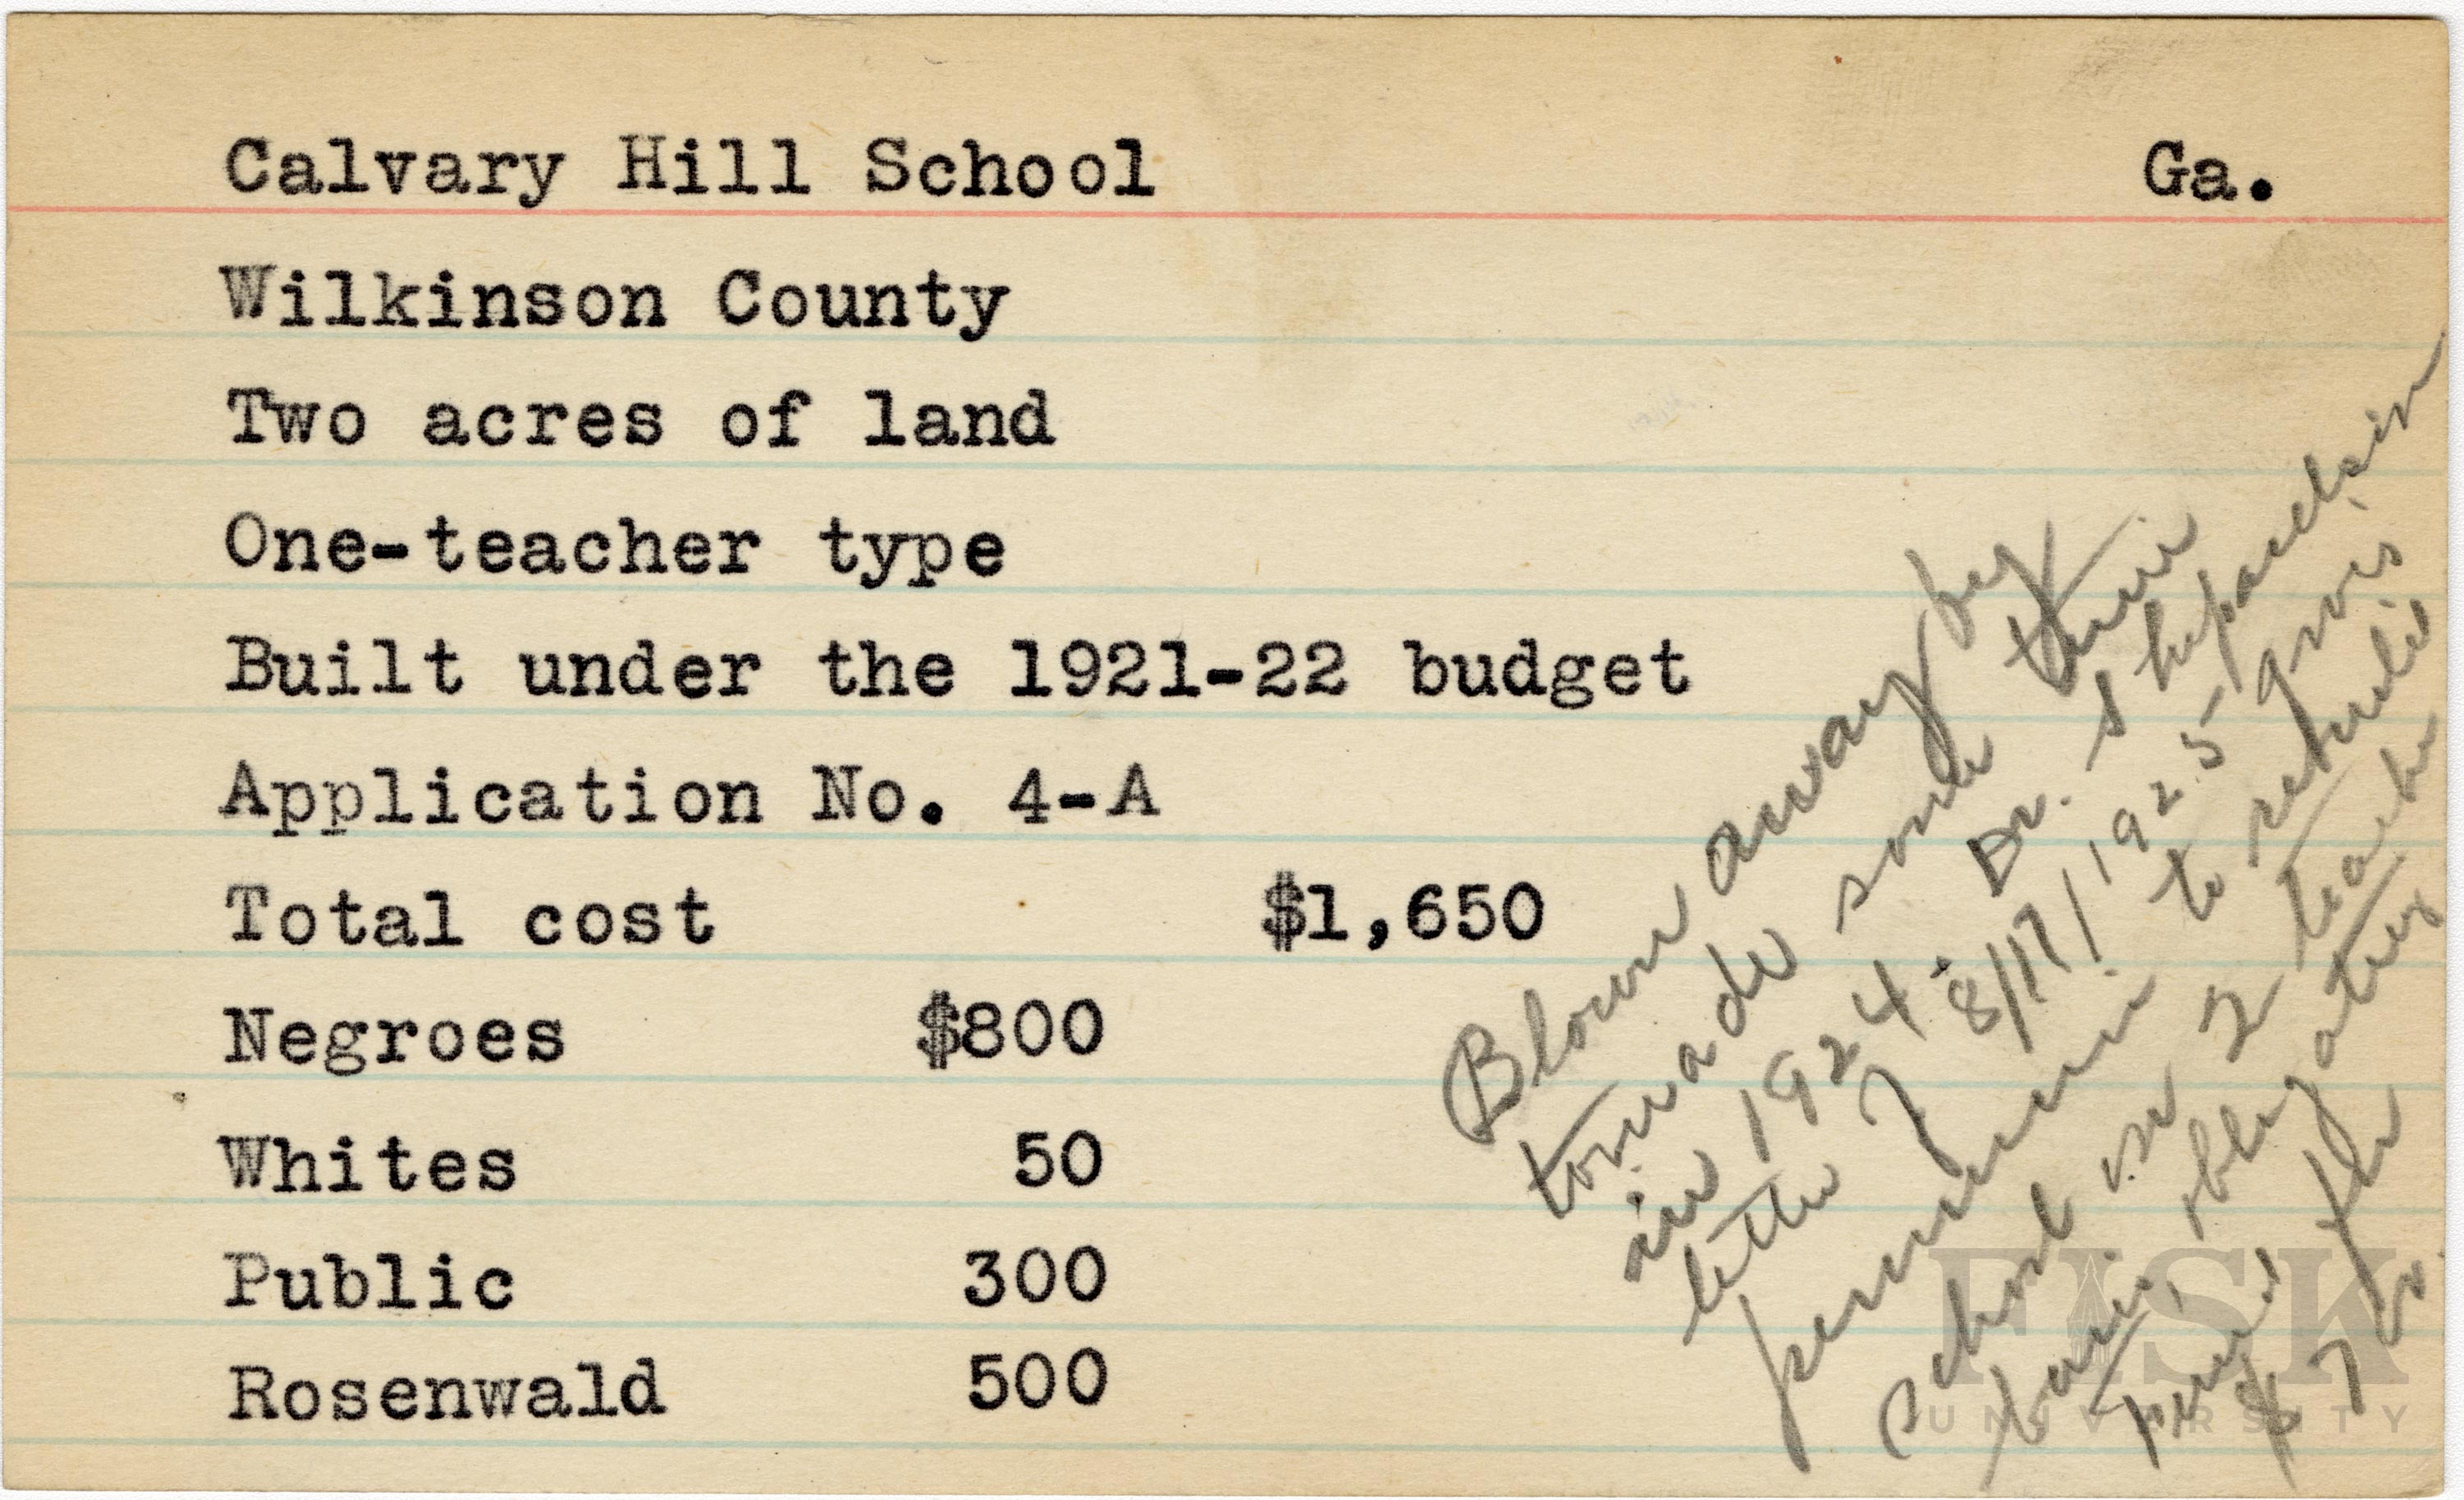 Calvary Hill School Ga.
Wilkinson County
Two acres of land
One-teacher type
Built under the 1921-22 budget
Application No. 4-A
Total cost $1,650
Negroes $800
Whites 50
Public 300
Rosenwald 500
Blown away by
tornado some time
in 1924. Dr. Shepardson
letter of 8/17/1925 gives
permission to rebuild
school on 2 teacher
basis, obligating
fund for
$7
FISK
UNIVERSITY